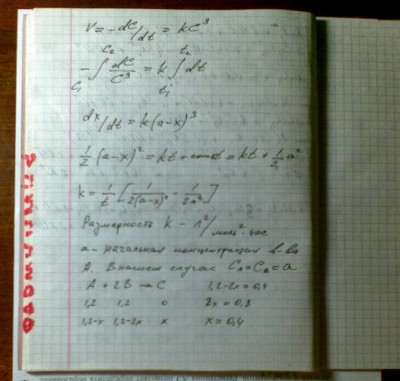 V = -dC/dt = kC³
-∫ dC/C³ = k ∫ dt
C₁ C₂ t₁ t₂
dx/dt = k(a-x)³
1/2 (a-x)² = kt + const = kt + 1/2 a²
k = 1/t [1/2(a-x)² - 1/2a²]
Размерность k - л²/моль²·час
a - начальная концентрация в-ва
А. В нашем случае Cₐ = Cʙ = a
A + 2B → C 1,2-2x = 0,4
1,2 1,2 0 2x = 0,8
1,2-x 1,2-2x x x = 0,4